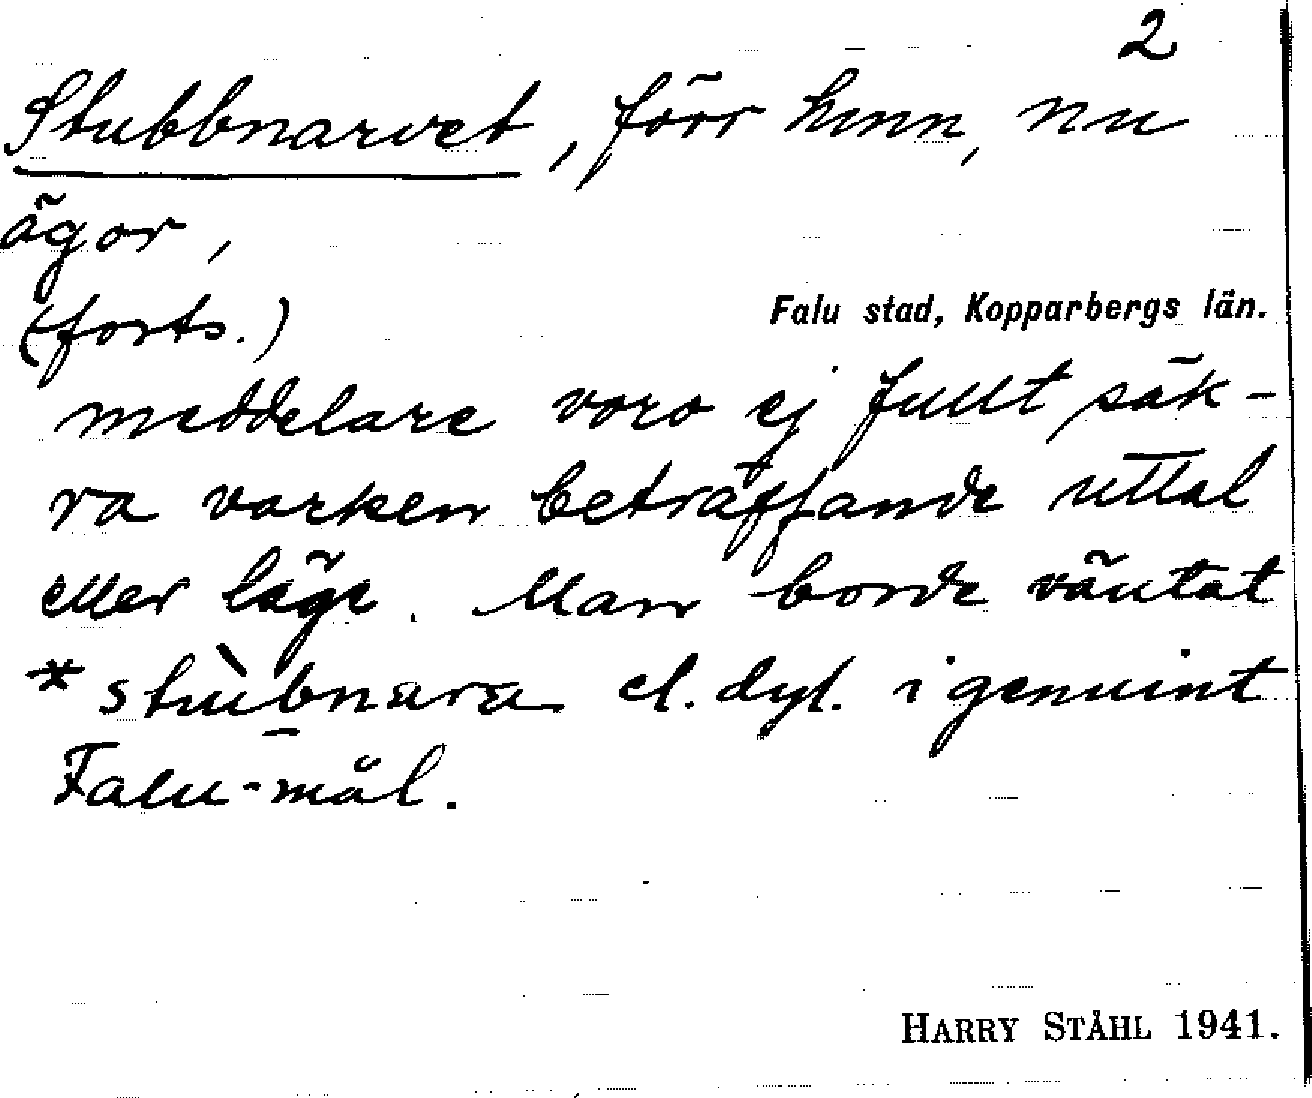 2
Stubbnarvet, förr hmn, nu
ägor,
(forts.)
Falu stad, Kopparbergs län.
meddelare voro ej fullt säk-
ra varken beträffande uttal
eller läge. Man borde väntat
* stùbnara el. dyl. i genuint
Falu-mål.
HARRY STÅHL 1941.